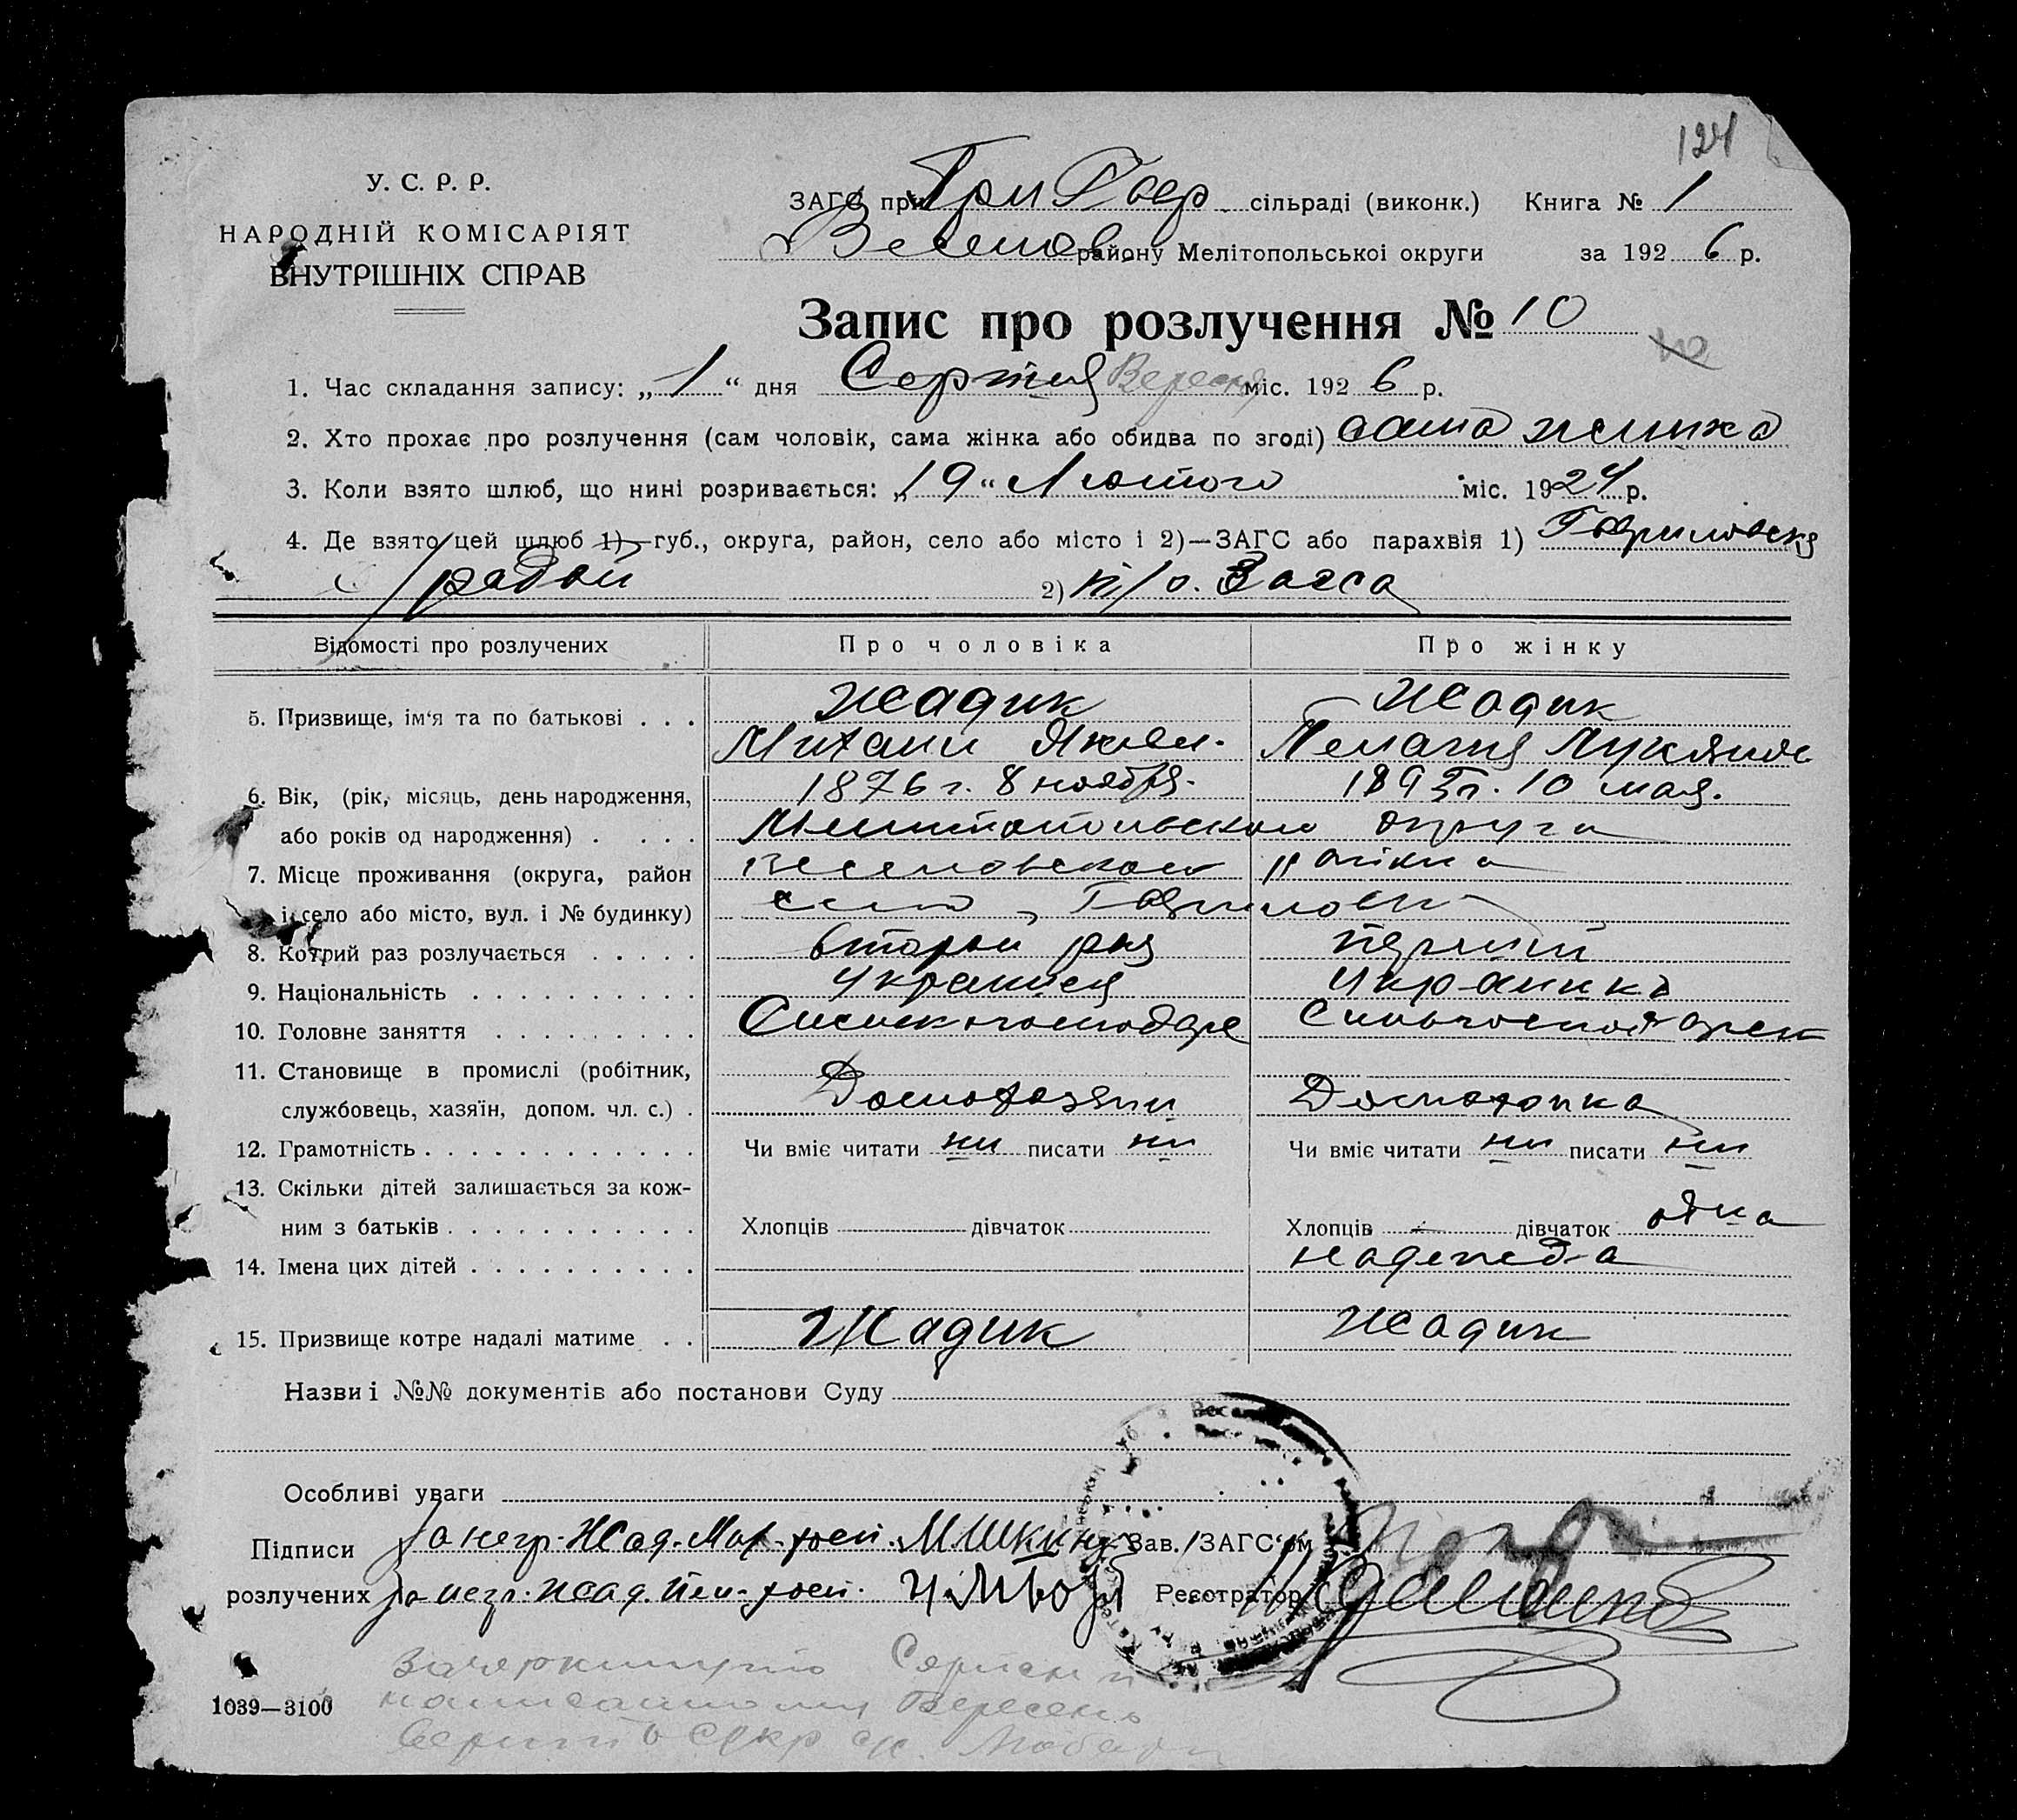 124
У. С. Р. Р.
НАРОДНІЙ КОМІСАРІЯТ
ВНУТРІШНІХ СПРАВ
ЗАГС при сільраді (виконк.) Книга № 1
Веселов. району Мелітопольської округи за 1926 р.
Запис про розлучення № 10
1. Час складання запису: „1“ дня Серпня Вересня міс. 1926 р.
2. Хто прохає про розлучення (сам чоловік, сама жінка або обидва по згоді) сама жинка
3. Коли взято шлюб, що нині розривається: „19“ Лютого міс. 1924 р.
4. Де взято цей шлюб 1)—губ., округа, район, село або місто і 2)—ЗАГС або парахвія 1)
радой 2) п/о. Загса
Відомості про розлучених Про чоловіка Про жінку
5. Призвище, ім‘я та по батькові . . . Жадик Жадик
Михаил Яковл. Пелагия Лукянов
6. Вік, (рік, місяць, день народження, 1876 г. 8 ноября. 1895 г. 10 мая.
або років од народження) . . . . Мелитопольского округа
7. Місце проживання (округа, район Веселовского района
і село або місто, вул. і № будинку) село Гавриловк
8. Котрий раз розлучається . . . . . второй раз первий
9. Національність . . . . . . . . . . Украинец Украинка
10. Головне заняття . . . . . . . . .
11. Становище в промислі (робітник,
службовець, хазяїн, допом. чл. с.) . Домохазяин
12. Грамотність . . . . . . . . . . . . Чи вміє читати ни писати ни Чи вміє читати ни писати ни
13. Скільки дітей залишається за кож-
ним з батьків . . . . . . . . . . . Хлопців дівчаток Хлопців - дівчаток одна
14. Імена цих дітей . . . . . . . . . . Надежда
15. Призвище котре надалі матиме . . Жадик Жадик
Назви і №№ документів або постанови Суду
Особливі уваги
Підписи За негр. Жад. Мих. росп. Зав. ЗАГС‘ом
розлучених За негр. Жад. Пел. росп. Реєстратор
Зачеркнуто Серпень
написанному Вересень
1039—3100